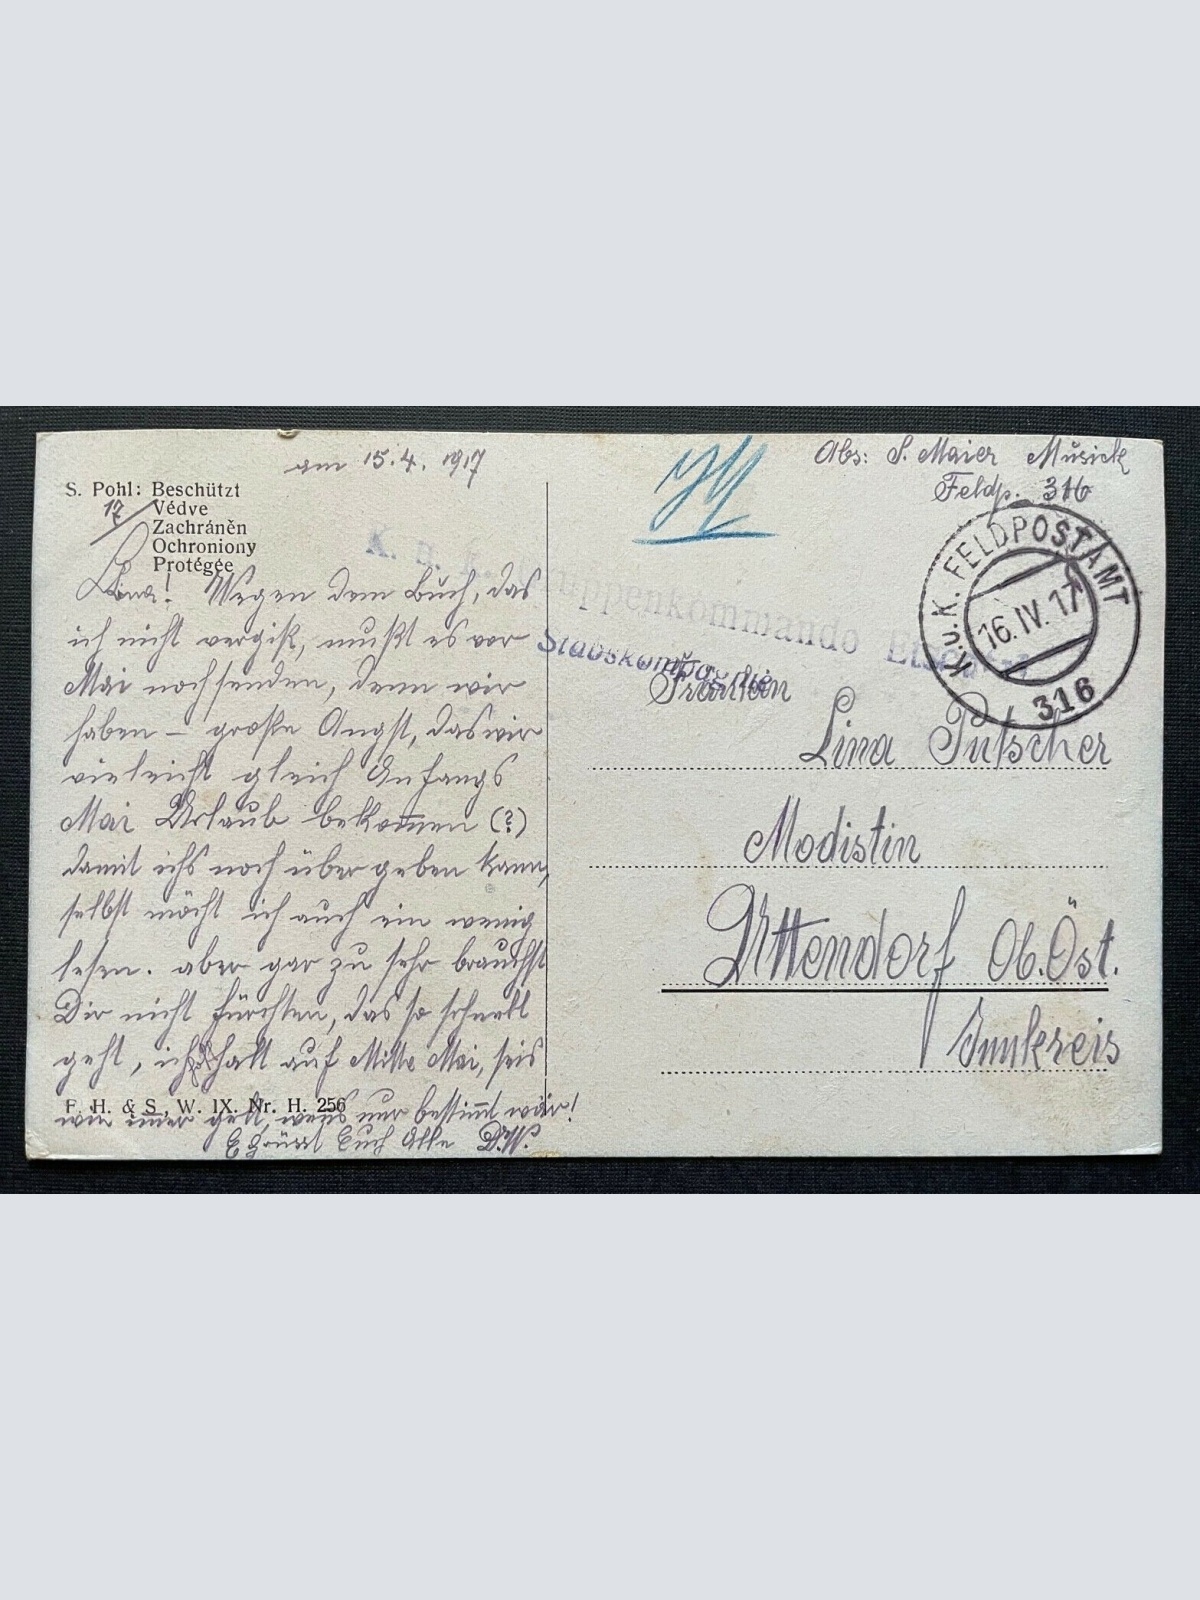 am 15.4. 1917
S. Pohl: Beschützt
17 Védve
Zachráněn
Ochroniony
Protégée
Lina! Wegen dem Buch, das
ich nicht vergiß, mußt es vor
Mai noch senden, denn wir
haben – große Angst, das wir
vieleicht gleich Anfangs
Mai Urlaub bekom̅en (?)
damit ichs noch über geben kann,
selbst möcht ich auch ein wenig
lesen. aber gar zu sehr brauchst
Dir nicht fürchten, das so schnell
geht, ich halt auf Mitte Mai, seis
F. H. & S. W. IX. Nr. H. 256
wie im̅er geht, wens nur bestim̅t wär!
Es grüsst Euch Alle D.W.
K. u. K. Gruppenkommando
Stabskompagnie
Abs: S. Maier Musick
Feldp. 316
K.u.K. FELDPOSTAMT
16. IV. 17
316
Fräulein
Lina Putscher
Modistin
Uttendorf Ob. Öst.
Innkreis